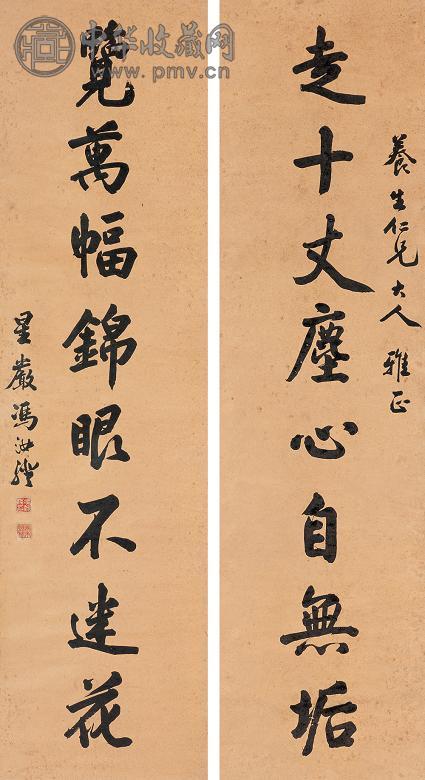 養生仁兄大人 雅正
走十丈塵心自無垢
覽萬幅錦眼不迷花
星巖馮汝騤
中华收藏网
www.pmv.cn